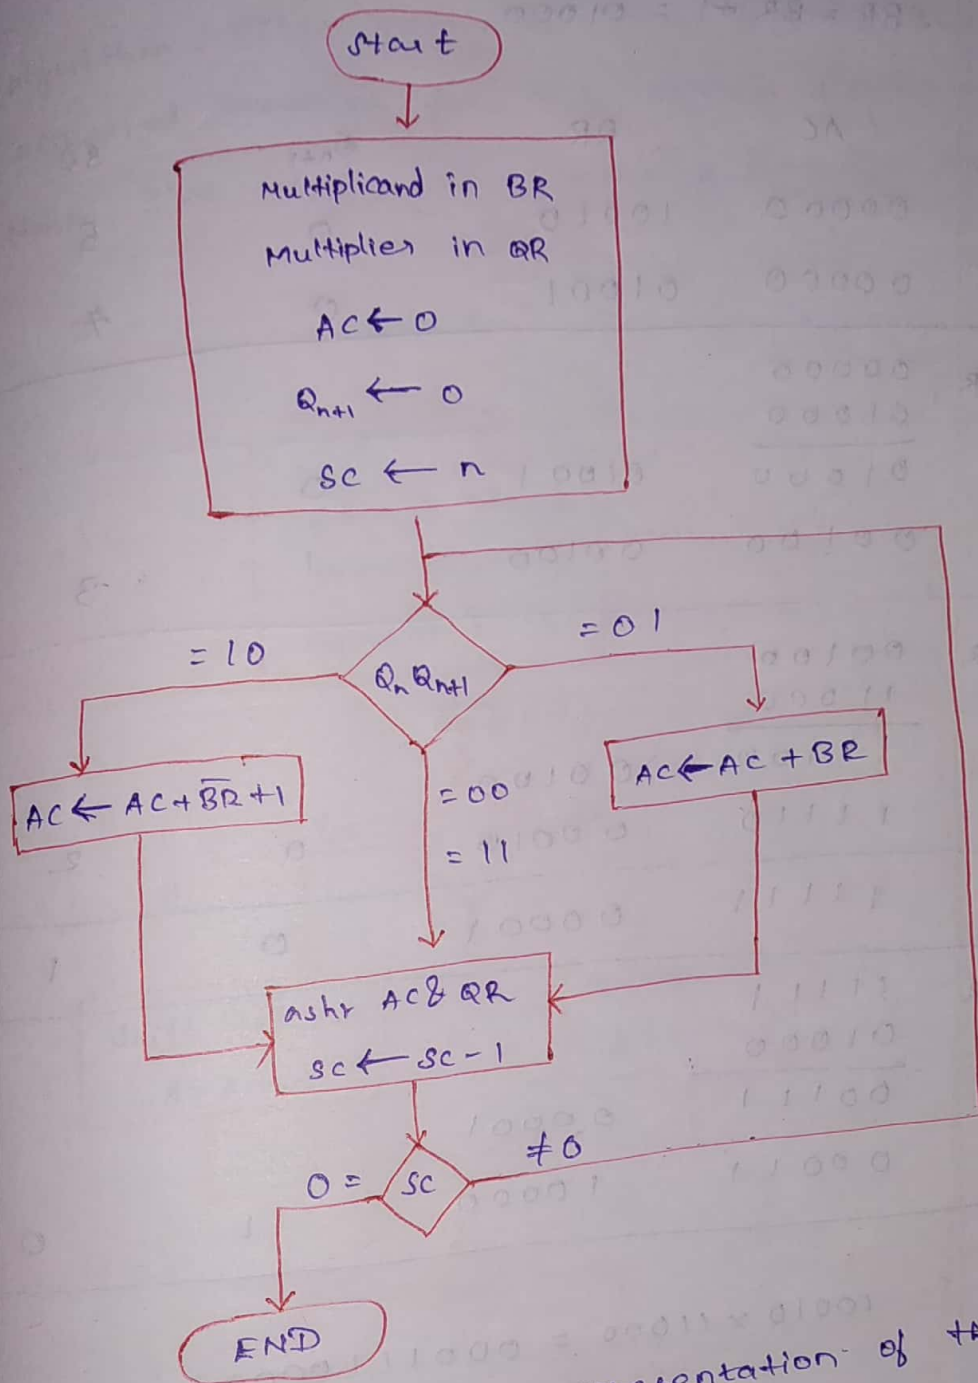 Start
Multiplicand in BR
Multiplier in QR
AC ← 0
Qn+1 ← 0
SC ← n
= 10
Qn Qn+1
= 01
AC ← AC + B̅R̅ + 1
= 00
= 11
AC ← AC + BR
ashr AC & QR
SC ← SC - 1
0 =
SC
≠ 0
END
of